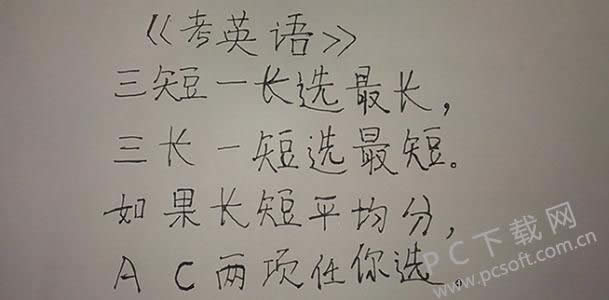 《考英语》
三短一长选最长，
三长一短选最短。
如果长短平均分，
A C两项任你选。
PC下载网
www.pcsoft.com.cn